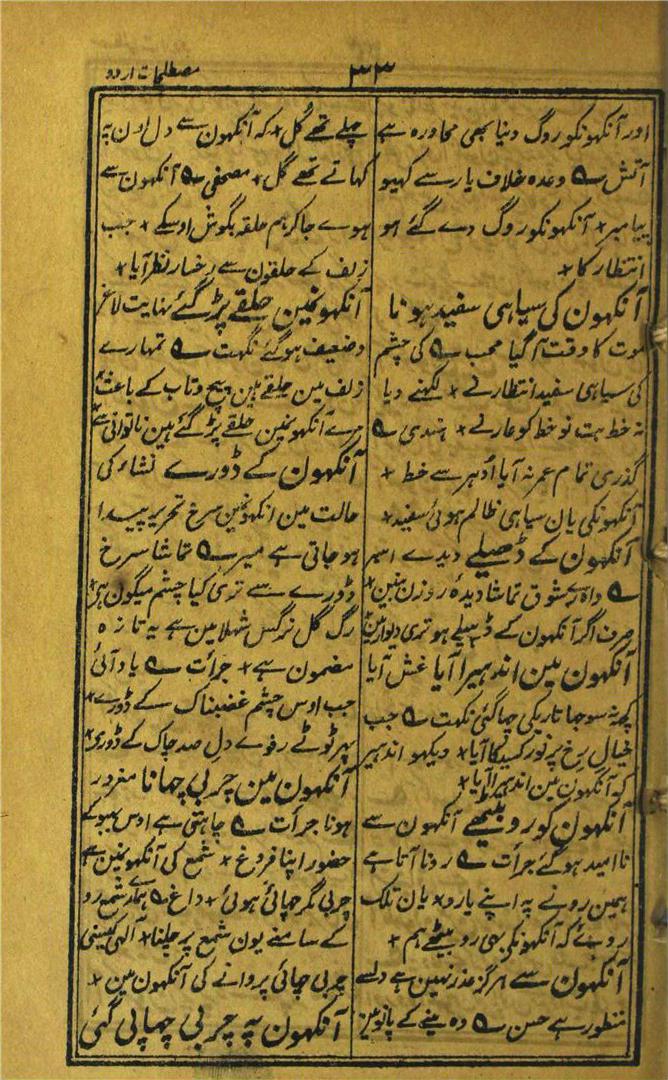 مصطلحات اردو
۳۳
اور آنکهونکو روگ دنیا بھی محاورہ ہے
آتش ؎ وعدہ خلاف یار سے کہیو
پیامبر * آنکهونکو روگ دے گئے ہو
انتظار کا *
آنکهون کی سیاہی سفید ہونا
موت کا وقت آگیا محب ؎ کی چشم
کی سیاہی سفید انتظار نے * لکھنے دیا
نہ خط بت نو خط کو عار نے * ہندی ؎
گذری تمام عمر نہ آیا اُدہر سے خط *
آنکهونکی یان سیاہی ظالم ہوئی سفید *
آنکهون کے ڈھیلے دیدے اسیر
؎ واہ رے شوق تماشا دیدۂ روزن بنین *
صرف اگر آنکهون کے ڈھیلے ہو تری دیوار مین
آنکهون مین اندھیرا آیا غش آیا
کچھ نہ سوجا تاریکی چھا گئی نکہت ؎ جب
خیال رخ پر نور کسیکا آیا * دیکھو اندھیر
کہ آنکهون مین اندھیرا آیا *
آنکهون کو رو بیٹھے آنکهون سے
نا امید ہو گئے جرأت ؎ رونا آتا ہے
ہمین رونے پہ اپنے یارو * یان تلک
روئے کہ آنکهونکو بھی رو بیٹھے ہم *
آنکهون سے ہرگز عذر نہین ہے دل سے
منظور ہے حسن ؎ وہ پینے کے پانو مین
چلے تھے گل * کہ آنکهون سے دل اون پہ
کھاتے تھے گل * مصحفی ؎ آنکهون سے
ہوے جا کر ہم حلقہ بگوش اوسکے * جب
زلف کے حلقون سے رخسار نظر آیا *
آنکهونمین حلقے پڑ گئے نہایت لاغر
و ضعیف ہو گئے نکہت ؎ تمہارے
زلف مین حلقے ہین پیچ و تاب کے باعث *
مرے آنکهونمین حلقے پڑ گئے ہین ناتوانی سے
آنکهون کے ڈورے نشاء کی
حالت مین انکھونمین سرخ تحریر پیدا
ہو جاتی ہے میر ؎ تماشا سرخ
ڈورے سے تری کیا چشم میگون ہی *
رگ گل نرگس شہلا مین ہے یہ تازہ
مضمون ہے * جرأت ؎ یاد آئی
جب اوس چشم غضبناک کے ڈورے *
پھر ٹوٹے رفوے دل صد چاک کے ڈوری *
آنکهون مین چربی چھانا مغرور
ہونا جرأت ؎ چاہتی ہے اوس بھبوکے
حضور اپنا فروغ * شمع کی آنکهونمین ہے
چربی مگر چھائی ہوئی * داغ ؎ ہمارے شمع رو
کے سامنے یون شمع پر جلنا * آلہی کیسی
چربی چھائی پروانے کی آنکهون مین *
آنکهون پہ چربی چھاپی گئی